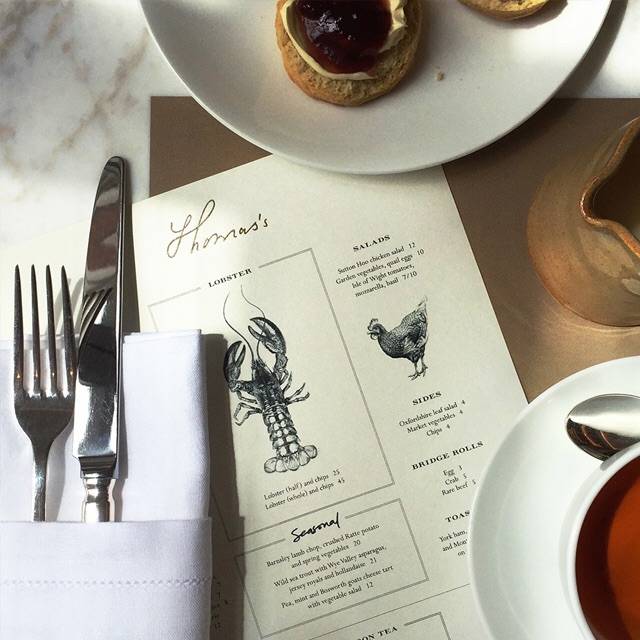 Thomas's
LOBSTER
Lobster (half) and chips 25
Lobster (whole) and chips 45
Seasonal
Barnsley lamb chop, crushed Ratte potato
and spring vegetables 20
Wild sea trout with Wye Valley asparagus,
jersey royals and hollandaise 21
Pea, mint and Bosworth goats cheese tart
with vegetable salad 12
SALADS
Sutton Hoo chicken salad 12
Garden vegetables, quail eggs 10
Isle of Wight tomatoes,
mozzarella, basil 7/10
SIDES
Oxfordshire leaf salad 4
Market vegetables 4
Chips 4
BRIDGE ROLLS
Egg 3
Crab 5
Rare beef
TOAS
York ham
and Mon
on
ON TEA